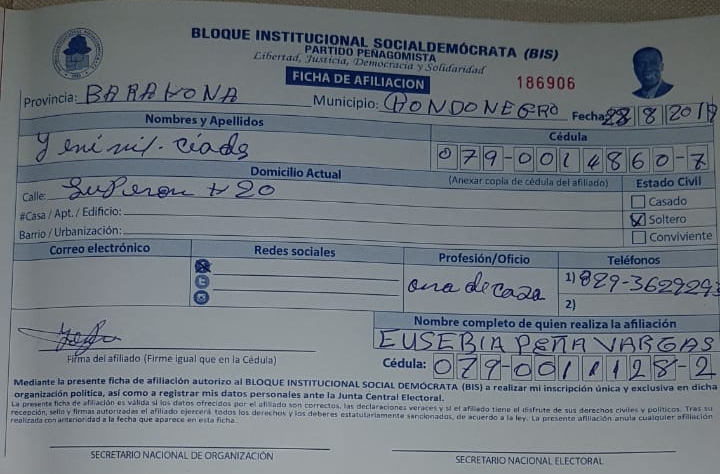 BLOQUE INSTITUCIONAL SOCIALDEMÓCRATA (BIS)
PARTIDO PEÑAGOMISTA
Libertad, Justicia, Democracia y Solidaridad
FICHA DE AFILIACION
186906
Provincia: BARAHONA Municipio: FONDO NEGRO Fecha 28 8 2019
Nombres y Apellidos
Cédula
Yeni
079-0014860-7
Domicilio Actual
(Anexar copia de cédula del afiliado)
Estado Civil
Calle: 20
Casado
#Casa / Apt. / Edificio:
Soltero
Barrio / Urbanización:
Conviviente
Correo electrónico
Redes sociales
Profesión/Oficio
Teléfonos
ama de casa
1) 829-3629293
2)
Nombre completo de quien realiza la afiliación
EUSEBIA PEÑA VARGAS
Firma del afiliado (Firme igual que en la Cédula)
Cédula: 079-0011128-2
Mediante la presente ficha de afiliación autorizo al BLOQUE INSTITUCIONAL SOCIAL DEMÓCRATA (BIS) a realizar mi inscripción única y exclusiva en dicha
organización política, así como a registrar mis datos personales ante la Junta Central Electoral.
La presente ficha de afiliación es válida si los datos ofrecidos por el afiliado son correctos, las declaraciones veraces y si el afiliado tiene el disfrute de sus derechos civiles y políticos. Tras su
recepción, sello y firmas autorizadas el afiliado ejercerá todos los derechos y los deberes estatutariamente sancionados, de acuerdo a la ley. La presente afiliación anula cualquier afiliación
realizada con anterioridad a la fecha que aparece en esta ficha.
SECRETARIO NACIONAL DE ORGANIZACIÓN
SECRETARIO NACIONAL ELECTORAL